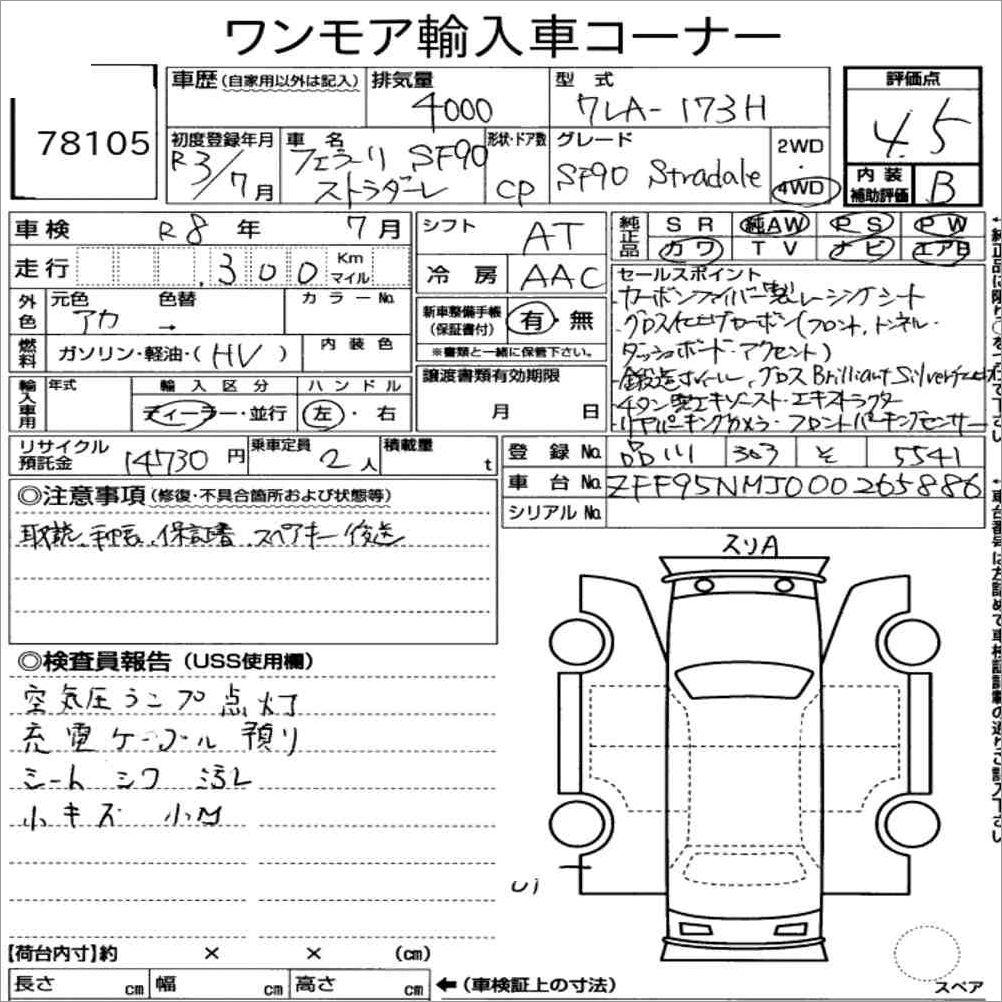 ワンモア輸入車コーナー
78105
車歴(自家用以外は記入)
排気量 4000
型式 7LA-173H
評価点 4.5
初度登録年月 R3/7月
車名 フェラーリ SF90 ストラダーレ
形状・ドア数 CP
グレード SF90 Stradale
2WD・4WD
内装補助評価 B
車検 R8年 7月
シフト AT
純正品 SR 純AW PS PW
カワ TV ナビ エアB
走行 .300 Km マイル
冷房 AAC
外色 元色 アカ 色替 → カラーNo.
新車整備手帳(保証書付) 有・無
※書類と一緒に保管下さい。
燃料 ガソリン・軽油・(HV) 内装色
譲渡書類有効期限 月 日
セールスポイント
・カーボンファイバー製レーシングシート
・グロス仕上げカーボン(フロント、トンネル・
ダッシュボード・アクセント)
・鍛造ホイール、グロスBrilliant Silver
・チタン製エキゾースト・エキストラクター
・リヤパーキングカメラ・フロントパーキングセンサー
輸入車用 年式 輸入区分 ディーラー・並行 ハンドル 左・右
リサイクル預託金 14730円
乗車定員 2人
積載量 t
登録No. 品川 303 そ 5541
車台No. ZFF95NMJ000265886
シリアルNo.
◎注意事項(修復・不具合箇所および状態等)
取説、手帳、保証書、スペアキー後送
◎検査員報告(USS使用欄)
空気圧ランプ点灯
充電ケーブル預り
シート シワ 汚レ
小キズ 小凹
スリA
U1
スペア
【荷台内寸】約 × × (cm)
長さ cm 幅 cm 高さ cm
←(車検証上の寸法)